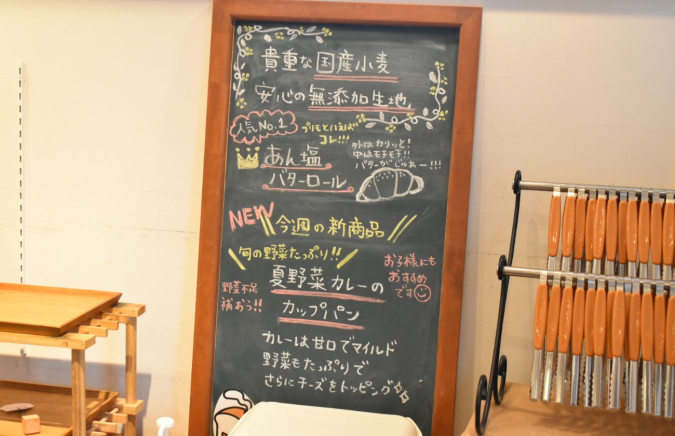 貴重な国産小麦
安心の無添加生地
人気No.1
プリモといえば
コレ!!!
あん塩
バターロール
外はカリッと!
中はモチモチ!!
バターがじゅわー!!!
NEW
今週の新商品
旬の野菜たっぷり!!
夏野菜カレーの
カップパン
野菜不足
補おう!!
お子様にも
おすすめ
です
カレーは甘口でマイルド
野菜もたっぷりで
さらにチーズをトッピング